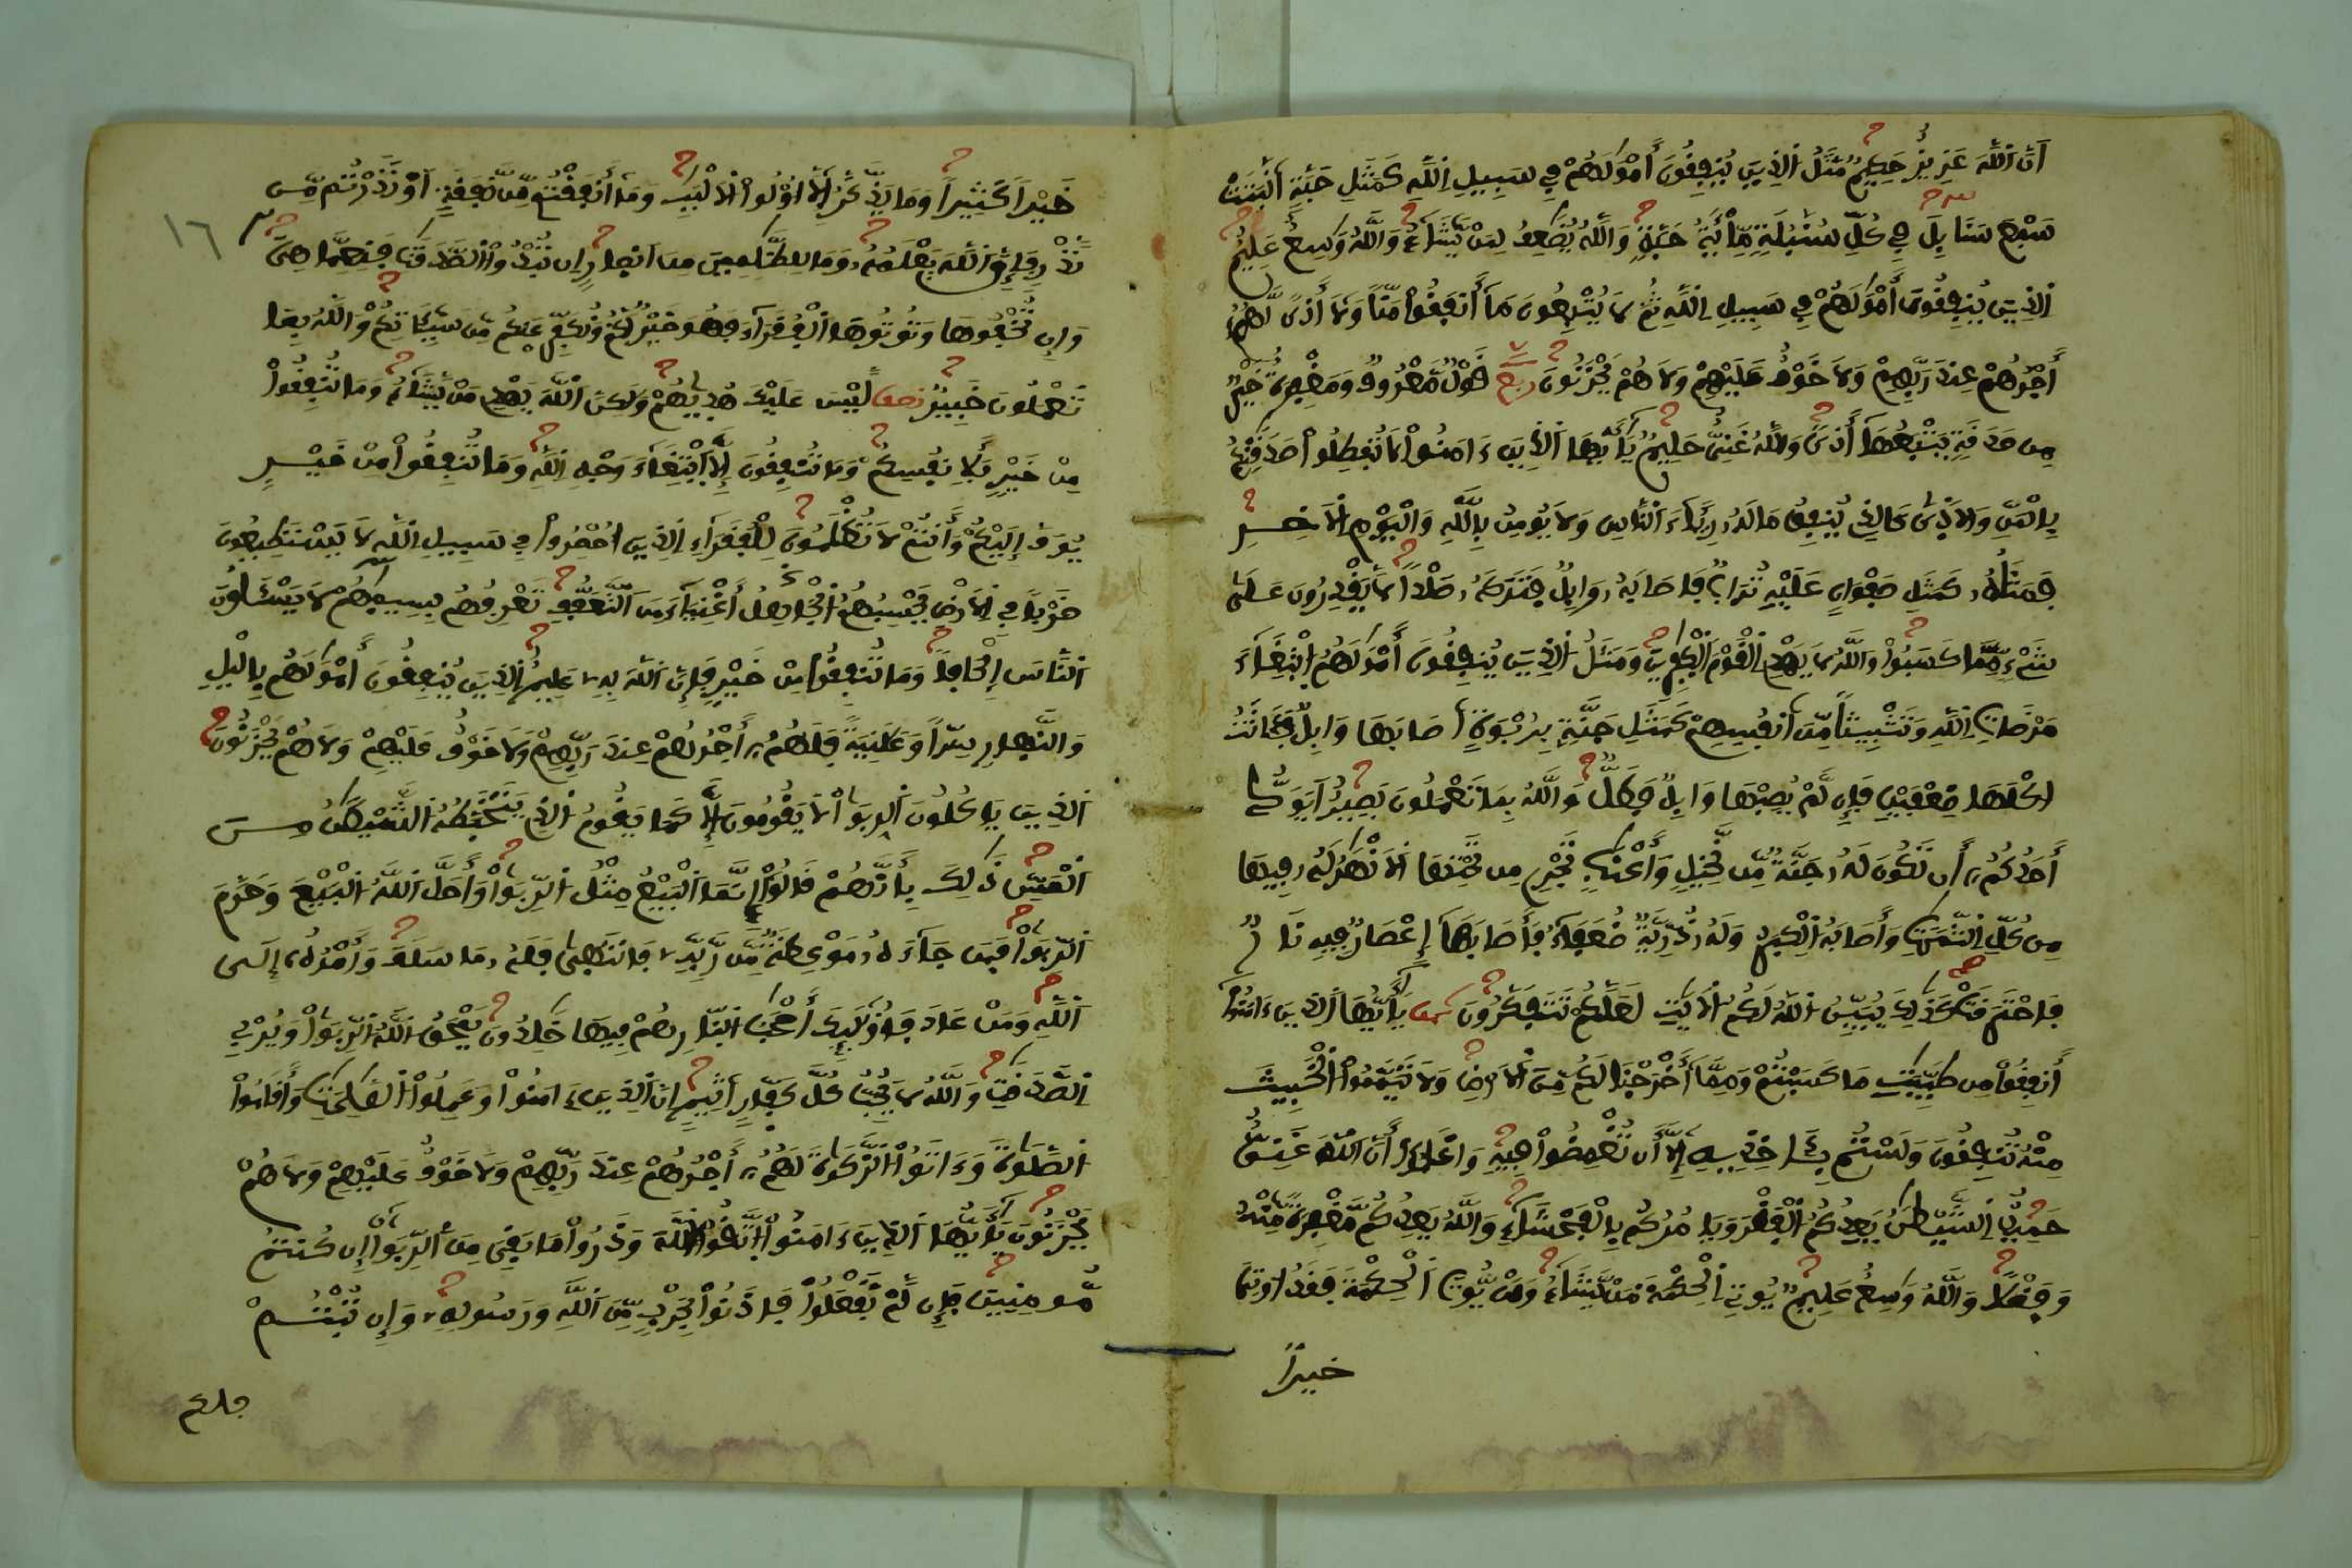 أَنَّ اَللَّهَ عَزِيزٌ حَكِيمٌ مَّثَلُ اُلذِينَ يُنفِقُونَ أَمْوَٰلَهُمْ فِي سَبِيلِ اِللَّهِ كَمَثَلِ حَبَّةٍ اَنۢبَتَتْ
سَبْعَ سَنَابِلَ فِي كُلِّ سُنۢبُلَةٍ مِّاْئَةُ حَبَّةٍ وَاللَّهُ يُضَٰعِفُ لِمَنْ يَّشَآءُ وَاللَّهُ وَٰسِعٌ عَلِيمٌ
اُلذِينَ يُنفِقُونَ أَمْوَٰلَهُمْ فِي سَبِيلِ اِللَّهِ ثُمَّ لَا يُتْبِعُونَ مَآ أَنفَقُواْ مَنّاً وَلَآ أَذىً لَّهُمُۥ
أَجْرُهُمْ عِندَ رَبِّهِمْ وَلَا خَوْفٌ عَلَيْهِمْ وَلَا هُمْ يَحْزَنُونَ ربع قَوْلٌ مَّعْرُوفٌ وَمَغْفِرَةٌ خَيْرٌ
مِّن صَدَقَةٍ يَتْبَعُهَآ أَذىً وَاللَّهُ غَنِىٌّ حَلِيمٌ يَٰٓأَيُّهَا اَلذِينَ ءَامَنُواْ لَا تُبْطِلُواْ صَدَقَٰتِكُم
بِالْمَنِّ وَالَاذَىٰ كَالذِي يُنفِقُ مَالَهُۥ رِئَآءَ اَلنَّاسِ وَلَا يُومِنُ بِاللَّهِ وَالْيَوْمِ اِلَاخِرِ
فَمَثَلُهُۥ كَمَثَلِ صَفْوَانٍ عَلَيْهِ تُرَابٌ فَأَصَابَهُۥ وَابِلٌ فَتَرَكَهُۥ صَلْداً لَّا يَقْدِرُونَ عَلَىٰ
شَےْءٍ مِّمَّا كَسَبُواْ وَاللَّهُ لَا يَهْدِي اِلْقَوْمَ اَلْكٰفِرِينَ وَمَثَلُ اُلذِينَ يُنفِقُونَ أَمْوَٰلَهُمُ اُبْتِغَآءَ
مَرْضَاتِ اِللَّهِ وَتَثْبِيتاً مِّنَ اَنفُسِهِمْ كَمَثَلِ جَنَّةٍ بِرُبْوَةٍ اَصَابَهَا وَابِلٌ فَـَٔاتَتُ
اكْلَهَا ضِعْفَيْنِ فَإِن لَّمْ يُصِبْهَا وَابِلٌ فَطَلٌّ وَاللَّهُ بِمَا تَعْمَلُونَ بَصِيرٌ اَيَوَدُّ
أَحَدُكُمُۥٓ أَن تَكُونَ لَهُۥ جَنَّةٌ مِّن نَّخِيلٍ وَأَعْنَٰبٍ تَجْرِي مِن تَحْتِهَا اَلَانْهَٰرُ لَهُۥ فِيهَا
مِن كُلِّ اِلثَّمَرَٰتِ وَأَصَابَهُ اُلْكِبَرُ وَلَهُۥ ذُرِّيَّةٌ ضُعَفَآءُ فَأَصَابَهَآ إِعْصَارٌ فِيهِ نَارٌ
فَاحْتَرَقَتْ كَذَٰلِكَ يُبَيِّنُ اُللَّهُ لَكُمُ اُلَايَٰتِ لَعَلَّكُمْ تَتَفَكَّرُونَ ثمن يَٰٓأَيُّهَا اَلذِينَ ءَامَنُوٓاْ
أَنفِقُواْ مِن طَيِّبَٰتِ مَا كَسَبْتُمْ وَمِمَّآ أَخْرَجْنَا لَكُم مِّنَ اَلَارْضِ وَلَا تَيَمَّمُواْ اُلْخَبِيثَ
مِنْهُ تُنفِقُونَ وَلَسْتُم بِـَٔاخِذِيهِ إِلَّآ أَن تُغْمِضُواْ فِيهِ وَاعْلَمُوٓاْ أَنَّ اَللَّهَ غَنِىٌّ
حَمِيدٌ اِلشَّيْطَٰنُ يَعِدُكُمُ اُلْفَقْرَ وَيَامُرُكُم بِالْفَحْشَآءِ وَاللَّهُ يَعِدُكُم مَّغْفِرَةً مِّنْهُ
وَفَضْلاً وَاللَّهُ وَٰسِعٌ عَلِيمٌ يُوتِي اِلْحِكْمَةَ مَنْ يَّشَآءُ وَمَنْ يُّوتَ اَلْحِكْمَةَ فَقَدُ اوتِيَ
خيراً
خَيْراً كَثِيراً وَمَا يَذَّكَّرُ إِلَّآ أُوْلُواْ اُلَالْبَٰبِ وَمَآ أَنفَقْتُم مِّن نَّفَقَةٍ اَوْ نَذَرْتُم مِّن
١٦
نَّذْرٍ فَإِنَّ اَللَّهَ يَعْلَمُهُۥ وَمَا لِلظَّٰلِمِينَ مِنَ اَنصارٍ اِن تُبْدُواْ اُلصَّدَقَٰتِ فَنِعِمَّا هِىَ
وَإِن تُخْفُوهَا وَتُوتُوهَا اَلْفُقَرَآءَ فَهُوَ خَيْرٌ لَّكُمْ وَنُكَفِّرْ عَنكُم مِّن سَيِّـَٔاتِكُمْ وَاللَّهُ بِمَا
تَعْمَلُونَ خَبِيرٌ نصف لَّيْسَ عَلَيْكَ هُدَيٰهُمْ وَلَٰكِنَّ اَللَّهَ يَهْدِي مَنْ يَّشَآءُ وَمَا تُنفِقُواْ
مِنْ خَيْرٍ فَلِأَنفُسِكُمْ وَمَا تُنفِقُونَ إِلَّا اَبْتِغَآءَ وَجْهِ اِللَّهِ وَمَا تُنفِقُواْ مِنْ خَيْرٍ
يُوَفَّ إِلَيْكُمْ وَأَنتُمْ لَا تُظْلَمُونَ لِلْفُقَرَآءِ اِلذِينَ أُحْصِرُواْ فِي سَبِيلِ اِللَّهِ لَا يَسْتَطِيعُونَ
ضَرْباً فِي اِلَارْضِ يَحْسِبُهُمُ اُلْجَاهِلُ أَغْنِيَآءَ مِنَ اَلتَّعَفُّفِ تَعْرِفُهُم بِسِيمَٰهُمْ لَا يَسْـَٔلُونَ
اَلنَّاسَ إِلْحَافاً وَمَا تُنفِقُواْ مِنْ خَيْرٍ فَإِنَّ اَللَّهَ بِهِۦ عَلِيمٌ اُلذِينَ يُنفِقُونَ أَمْوَٰلَهُم بِاليْلِ
وَالنَّهارِ سِرّاً وَعَلَٰنِيَةً فَلَهُمُۥٓ أَجْرُهُمْ عِندَ رَبِّهِمْ وَلَا خَوْفٌ عَلَيْهِمْ وَلَا هُمْ يَحْزَنُونَ
اَلذِينَ يَاكُلُونَ اَلرِّبَوٰاْ لَا يَقُومُونَ إِلَّا كَمَا يَقُومُ اُلذِي يَتَخَبَّطُهُ اُلشَّيْطَٰنُ مِنَ
اَلْمَسِّ ذَٰلِكَ بِأَنَّهُمْ قَالُوٓاْ إِنَّمَا اَلْبَيْعُ مِثْلُ اُلرِّبَوٰاْ وَأَحَلَّ اَللَّهُ اُلْبَيْعَ وَحَرَّمَ
اَلرِّبَوٰاْ فَمَن جَآءَهُۥ مَوْعِظَةٌ مِّن رَّبِّهِۦ فَانتَهَىٰ فَلَهُۥ مَا سَلَفَ وَأَمْرُهُۥٓ إِلَى
اَللَّهِ وَمَنْ عَادَ فَأُوْلَٰٓئِكَ أَصْحَٰبُ اُلنّارِ هُمْ فِيهَا خَٰلِدُونَ يَمْحَقُ اُللَّهُ اُلرِّبَوٰاْ وَيُرْبِي
اِلصَّدَقَٰتِ وَاللَّهُ لَا يُحِبُّ كُلَّ كَفّارٍ اَثِيمٍ اِنَّ اَلذِينَ ءَامَنُواْ وَعَمِلُواْ اُلصَّٰلِحَٰتِ وَأَقَامُواْ
اُلصَّلَوٰةَ وَءَاتَوُاْ اُلزَّكَوٰةَ لَهُمُۥٓ أَجْرُهُمْ عِندَ رَبِّهِمْ وَلَا خَوْفٌ عَلَيْهِمْ وَلَا هُمْ
يَحْزَنُونَ يَٰٓأَيُّهَا اَلذِينَ ءَامَنُواْ اُتَّقُواْ اُللَّهَ وَذَرُواْ مَا بَقِىَ مِنَ اَلرِّبَوٰٓاْ إِن كُنتُم
مُّومِنِينَ فَإِن لَّمْ تَفْعَلُواْ فَاذَنُواْ بِحَرْبٍ مِّنَ اَللَّهِ وَرَسُولِهِۦ وَإِن تُبْتُمْ
فلكم